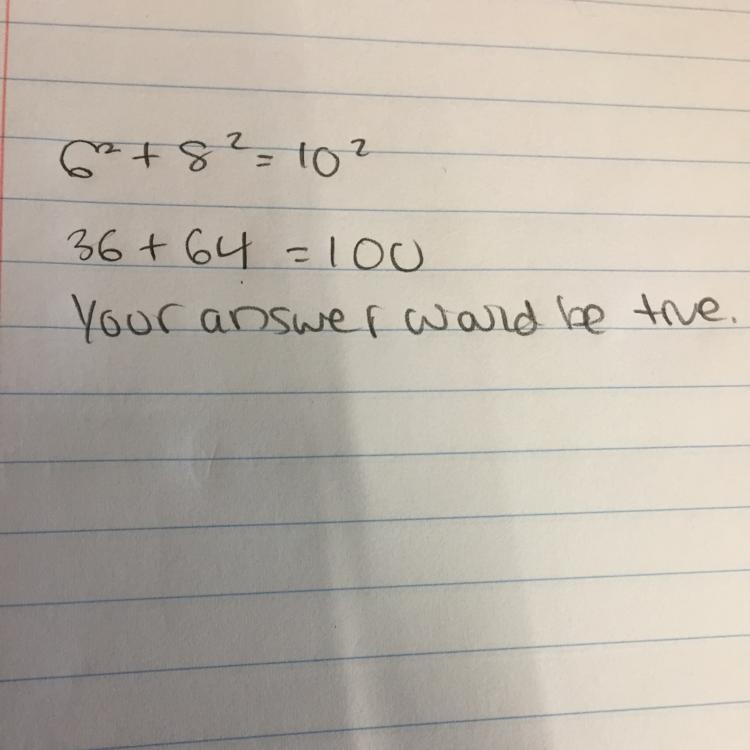 6² + 8² = 10²
36 + 64 = 100
Your answer would be true.